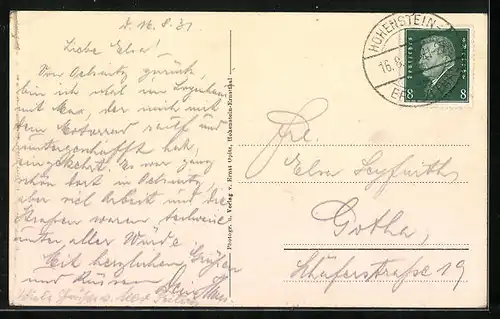 d. 16. 8. 31
Liebe Elsa!
Von Oelsnitz zurück,
bin ich weil im
mit Max, der mich mit
dem Motorrad rauf und
runtergeschafft hat,
eingekehrt. Es war ganz
schön dort in Oelsnitz,
aber viel Arbeit und die
Straßen waren teilweise
unter aller Würde.
Mit herzlichen Grüßen
und Küssen Dein Hans
Grüße s. Max
Photogr. u. Verlag v. Ernst Opitz, Hohenstein-Ernstthal
HOHENSTEIN-
16.8.
ER
Deutsches
8 8
Frl.
Elsa Seyfarth
Gotha,
Schäferstraße 19